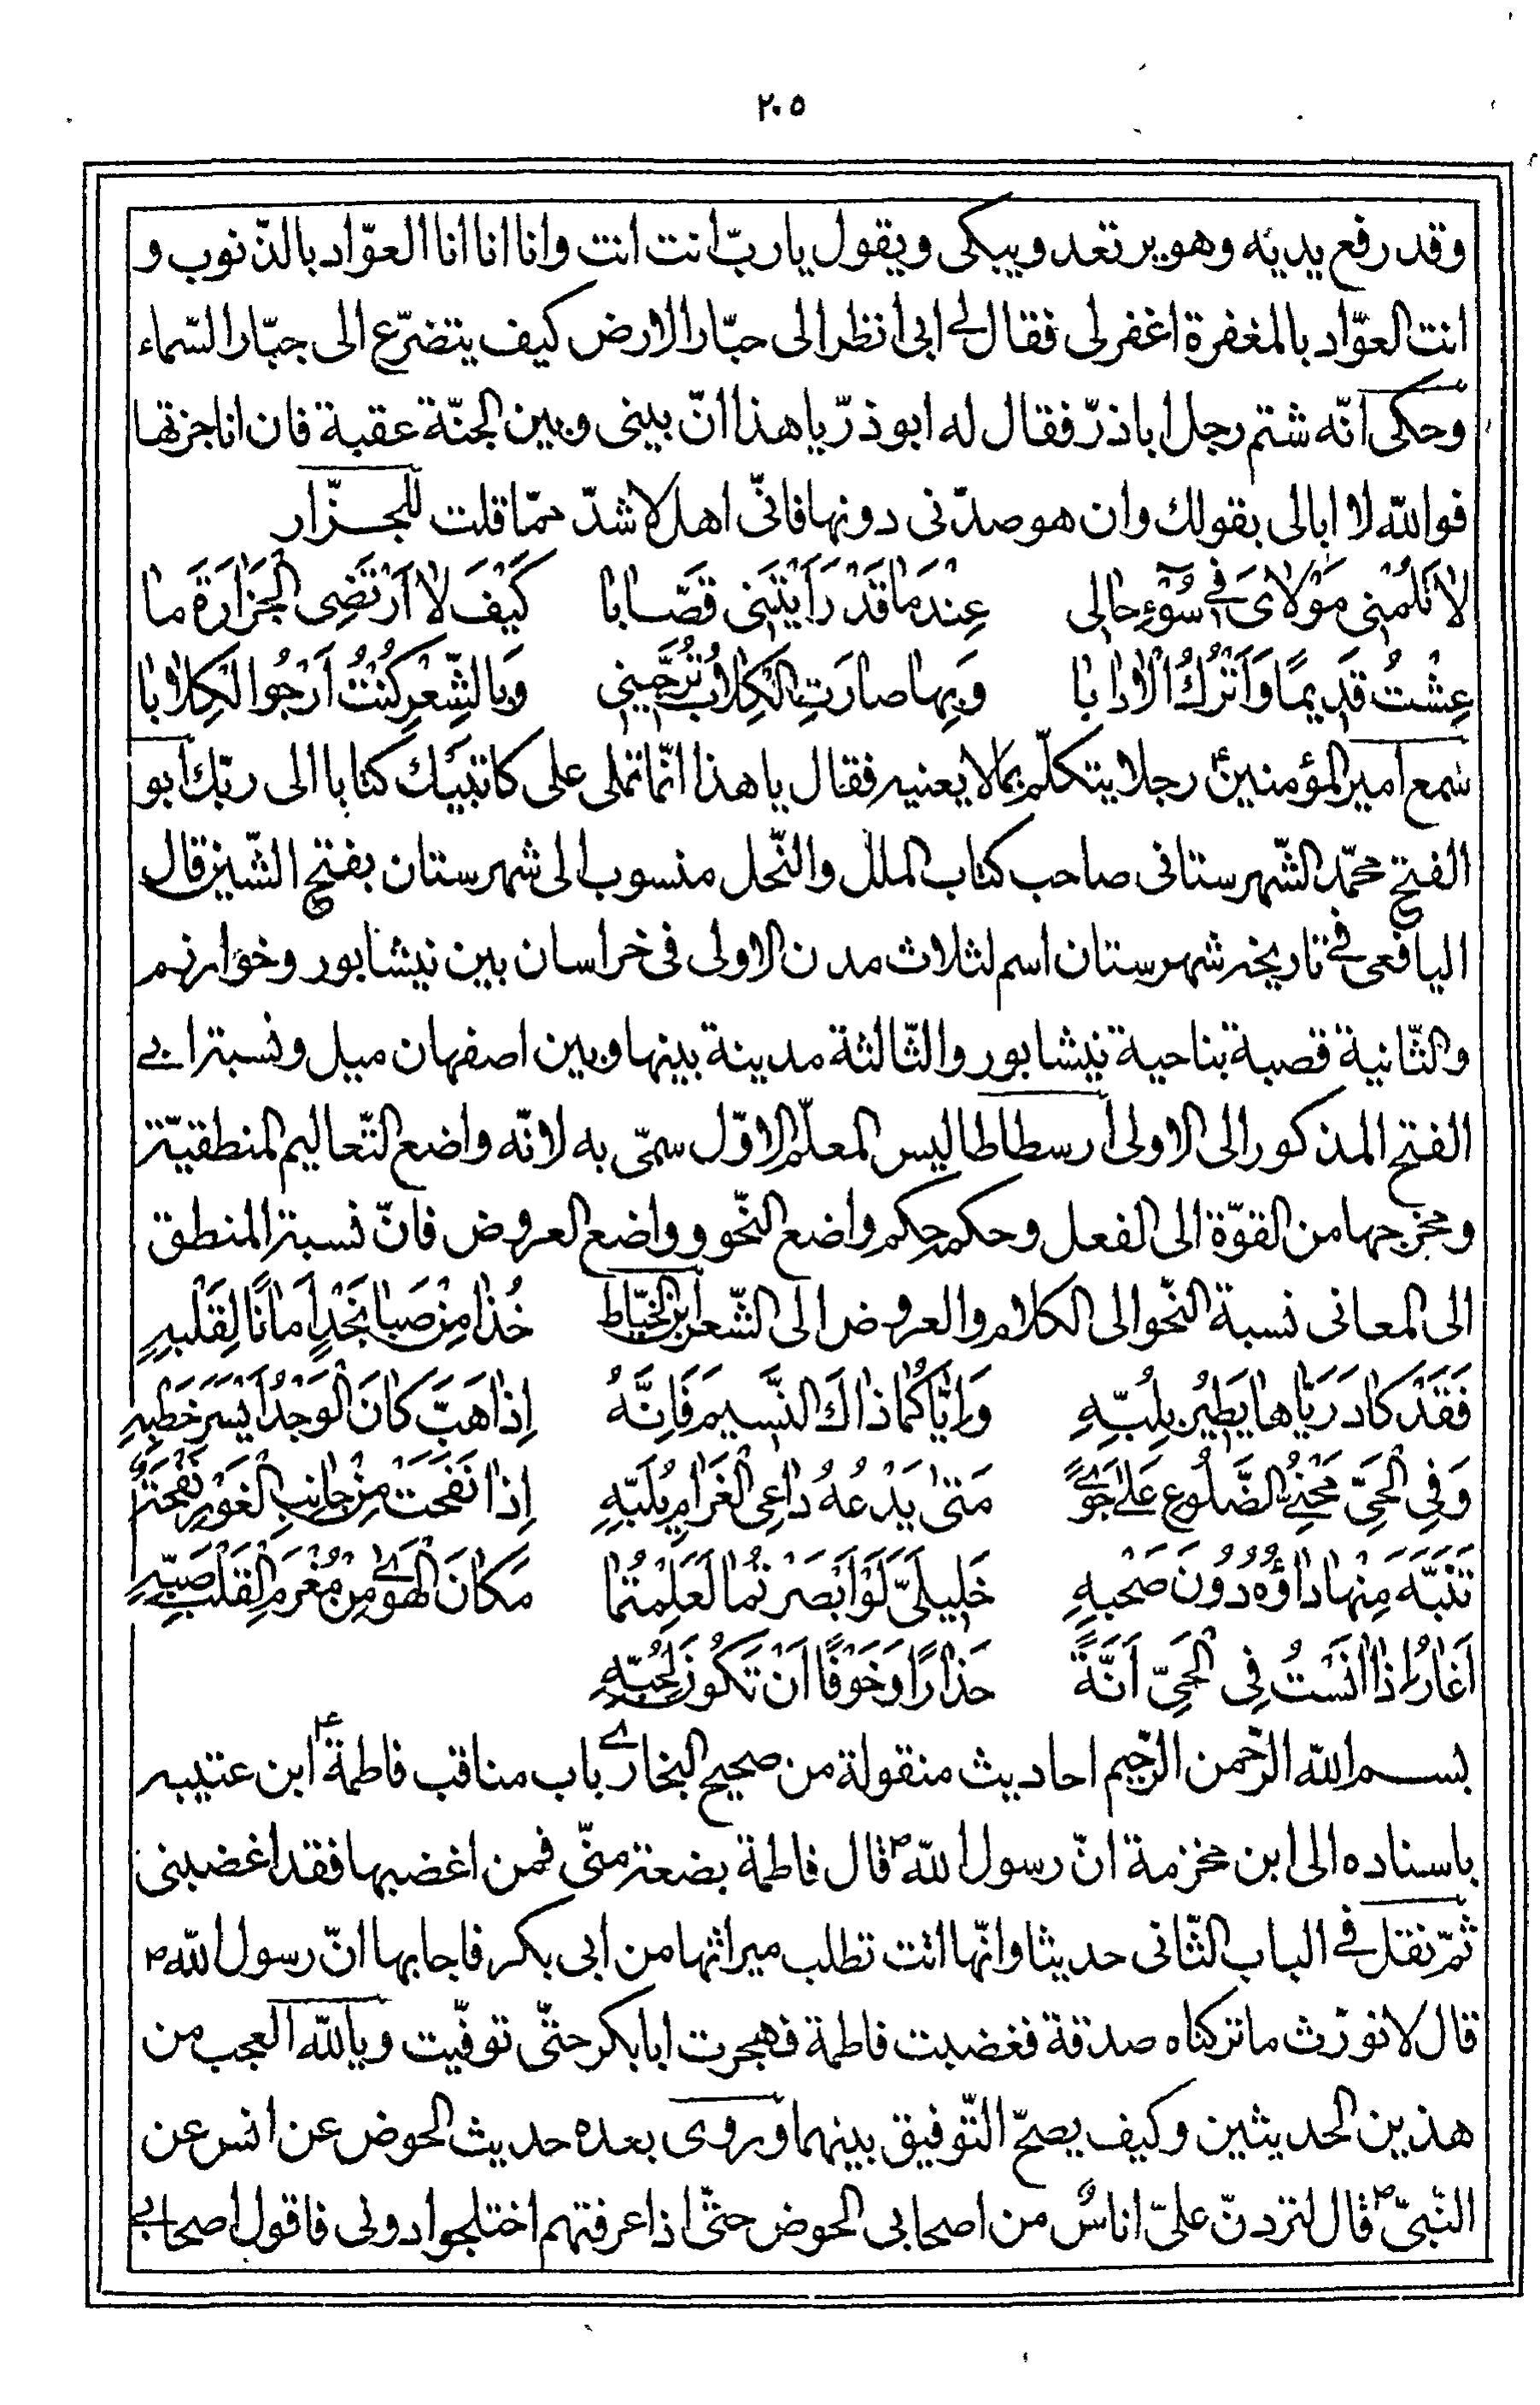 ٢٠٥
وقد رفع يديه وهو يرتعد ويبكى ويقول يا ربّ انت انت وانا انا انا العوّاد بالذّنوب و
انت العوّاد بالمغفرة اغفر لى فقال لى ابى انظر الى جبّار الارض كيف يتضرّع الى جبّار السّماء
وحكى انّه شتم رجل اباذرّ فقال له ابو ذرّ يا هذا انّ بينى وبين الجنّة عقبة فان انا جزتها
فوالله لا ابالى بقولك وان هو صدّنى دونها فانّى اهل لاشدّ ممّا قلت للجـزّار
لاٰ تَلُمْنى مَوْلاٰىَ فى سُوٓءِ حٰالى عِنْدَ مٰا قَدْ رَأَيْتَنى قَصّٰابا كَيْفَ لاٰ اَرْتَضِى الْجَزٰارَةَ مٰا
عِشْتُ قَديمًا وَاَتْرُكُ الْاٰدٰابا وَبِهٰا صٰارَتِ الْكِلاٰبُ تُرَجّينى وَبِالشِّعْرِ كُنْتُ اَرْجُوا الْكِلاٰبا
سمع امير المؤمنينؑ رجلا يتكلّم بما لا يعنيه فقال يا هذا انّما تملى على كاتبيك كتابا الى ربّك ابو
الفتح محمّد الشّهرستانى صاحب كتاب الملل والنّحل منسوب الى شهرستان بفتح الشّين قال
اليافعى فى تاريخه شهرستان اسم لثلاث مدن الاولى فى خراسان بين نيشابور وخوارزم
والثّانية قصبة بناحية نيشابور والثّالثة مدينة بينها وبين اصفهان ميل ونسبة ابى
الفتح المذكور الى الاولى ارسطاطاليس المعلّم الاوّل سمّى به لانّه واضع التّعاليم المنطقيّة
ومخرجها من القوّة الى الفعل وحكمه حكم واضع النّحو وواضع العروض فانّ نسبة المنطق
الى المعانى نسبة النّحو الى الكلام والعروض الى الشّعر ابن الخيّاط خُذٰا مِنْ صَبٰا نَجْدٍ اَمٰانًا لِقَلْبِهِ
فَقَدْ كٰادَ رَيّٰاهٰا يَطيرُ بِلُبِّهِ وَاِيّٰاكُمٰا ذٰاكَ النَّسيمَ فَاِنَّهُ اِذٰا هَبَّ كٰانَ الْوَجْدُ اَيْسَرَ خَطْبِهِ
وَفِى الْحَىِّ مَحْنِىُّ الضُّلُوعِ عَلىٰ جَوىً مَتىٰ يَدْعُهُ دٰاعِى الْغَرٰامِ يُلَبِّهِ اِذٰا نَفَحَتْ مِنْ جٰانِبِ الْغَوْرِ نَفْحَةٌ
تَنَبَّهَ مِنْهٰا دٰاؤُهُ دُونَ صَحْبِهِ خَليلَىَّ لَوْ اَبْصَرْتُمٰا لَعَلِمْتُمٰا مَكٰانَ الْهَوىٰ مِنْ مُغْرَمِ الْقَلْبِ صَبِّهِ
اَغٰارُ اِذٰا اٰنَسْتُ فِى الْحَىِّ اَنَّةً حَذٰارًا وَخَوْفًا اَنْ تَكُونَ لِحُبِّهِ
بسم الله الرّحمن الرّحيم احاديث منقولة من صحيح البخارى باب مناقب فاطمةؑ ابن عتيبه
باسناده الى ابن مخرمة انّ رسول اللهؐ قال فاطمة بضعة منّى فمن اغضبها فقد اغضبنى
ثمّ نقل فى الباب الثّانى حديثا وانّها اتت تطلب ميراثها من ابى بكر فاجابها انّ رسول اللهؐ
قال لا نورّث ما تركناه صدقة فغضبت فاطمة فهجرت ابابكر حتّى توفّيت ويالله العجب من
هذين الحديثين وكيف يصحّ التّوفيق بينهما وروى بعده حديث الحوض عن انس عن
النّبىّؐ قال لتردنّ علىّ اناسٌ من اصحابى الحوض حتّى اذا عرفتهم اختلجوا دونى فاقول اصحابى